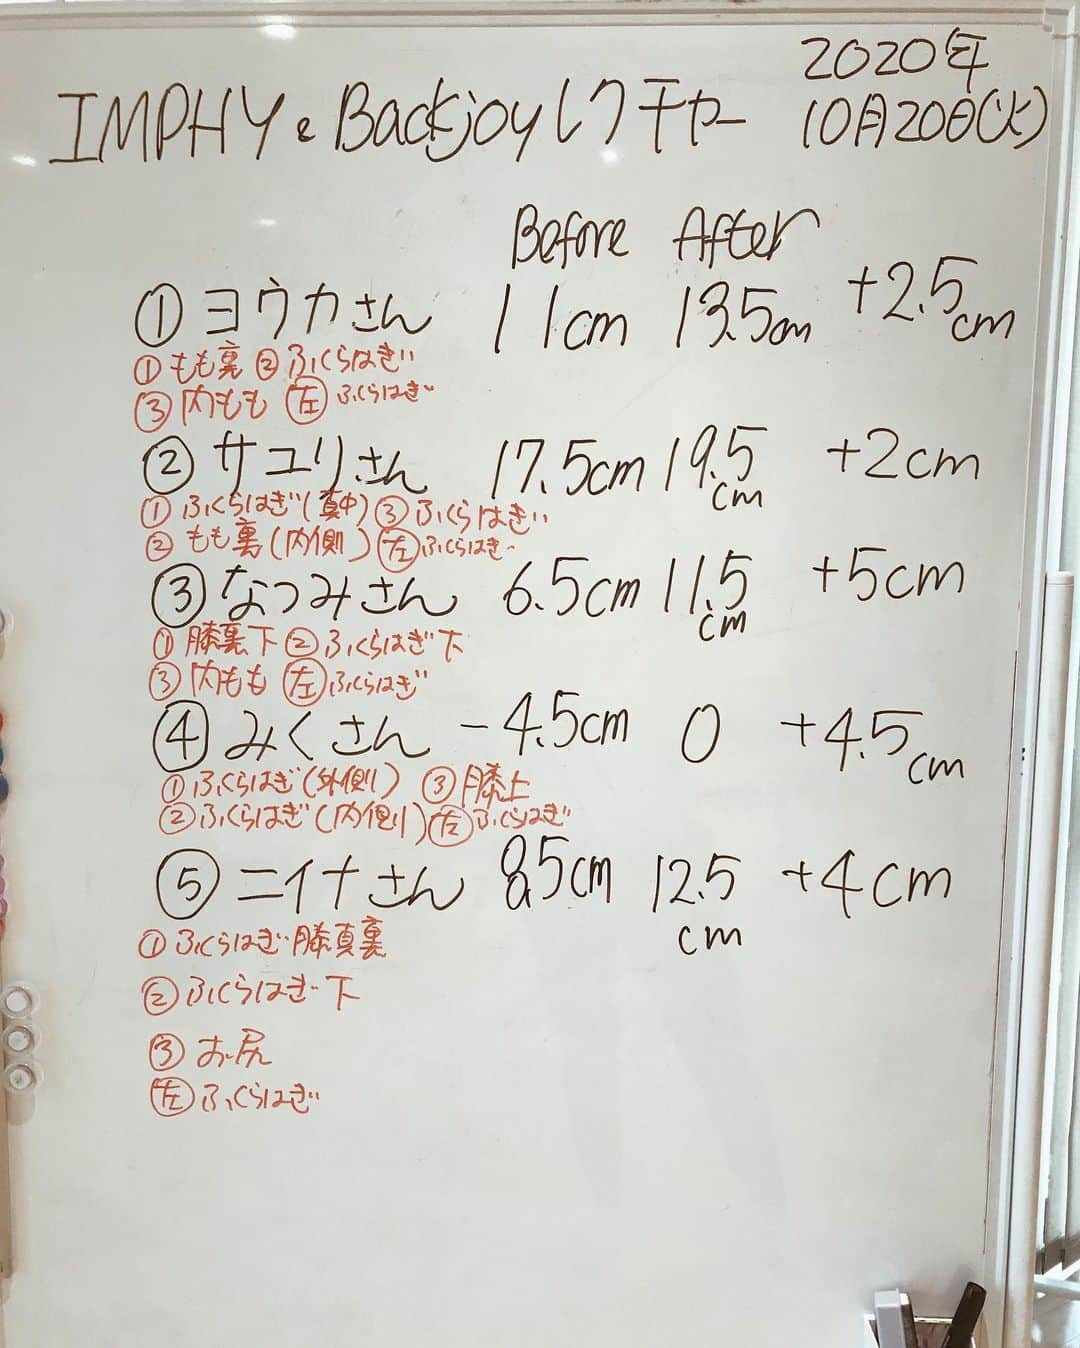 2020年
IMPHY & Backjoyレクチャー 10月20日(火)
Before After
①ヨウカさん 11cm 13.5cm +2.5cm
①もも裏 ②ふくらはぎ
③内もも 左ふくらはぎ
②サユリさん 17.5cm 19.5cm +2cm
①ふくらはぎ(真中) ③ふくらはぎ
②もも裏(内側) 左ふくらはぎ
③なつみさん 6.5cm 11.5cm +5cm
①膝裏下 ②ふくらはぎ下
③内もも 左ふくらはぎ
④みくさん -4.5cm 0 +4.5cm
①ふくらはぎ(外側) ③膝上
②ふくらはぎ(内側) 左ふくらはぎ
⑤ニイナさん 8.5cm 12.5cm +4cm
①ふくらはぎ・膝真裏
②ふくらはぎ下
③お尻
左ふくらはぎ